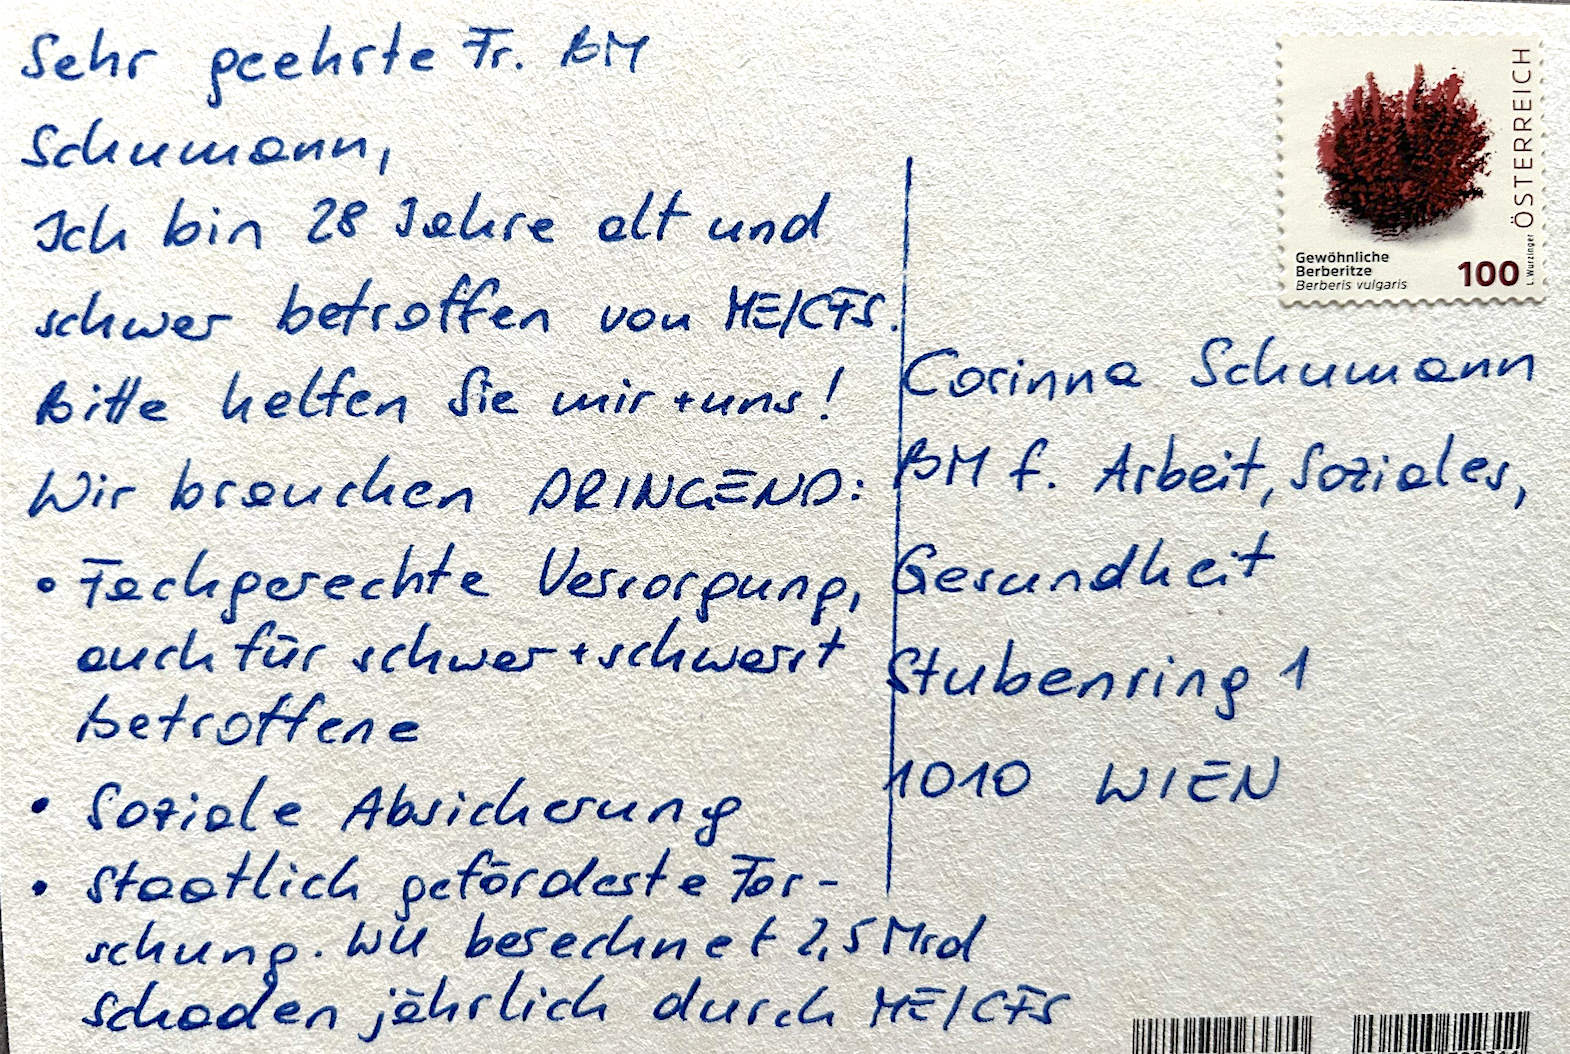 Sehr geehrte Fr. BM
Schumann,
Ich bin 28 Jahre alt und
schwer betroffen von ME/CFS.
Bitte helfen Sie mir + uns!
Wir brauchen DRINGEND:
• Fachgerechte Versorgung,
auch für schwer + schwerst
Betroffene
• Soziale Absicherung
• Staatlich geförderte For-
schung. WU berechnet 2,5 Mrd
Schaden jährlich durch ME/CFS
ÖSTERREICH
L. Wurzinger
Gewöhnliche
Berberitze
Berberis vulgaris
100
Corinna Schumann
BM f. Arbeit, Soziales,
Gesundheit
Stubenring 1
1010 WIEN